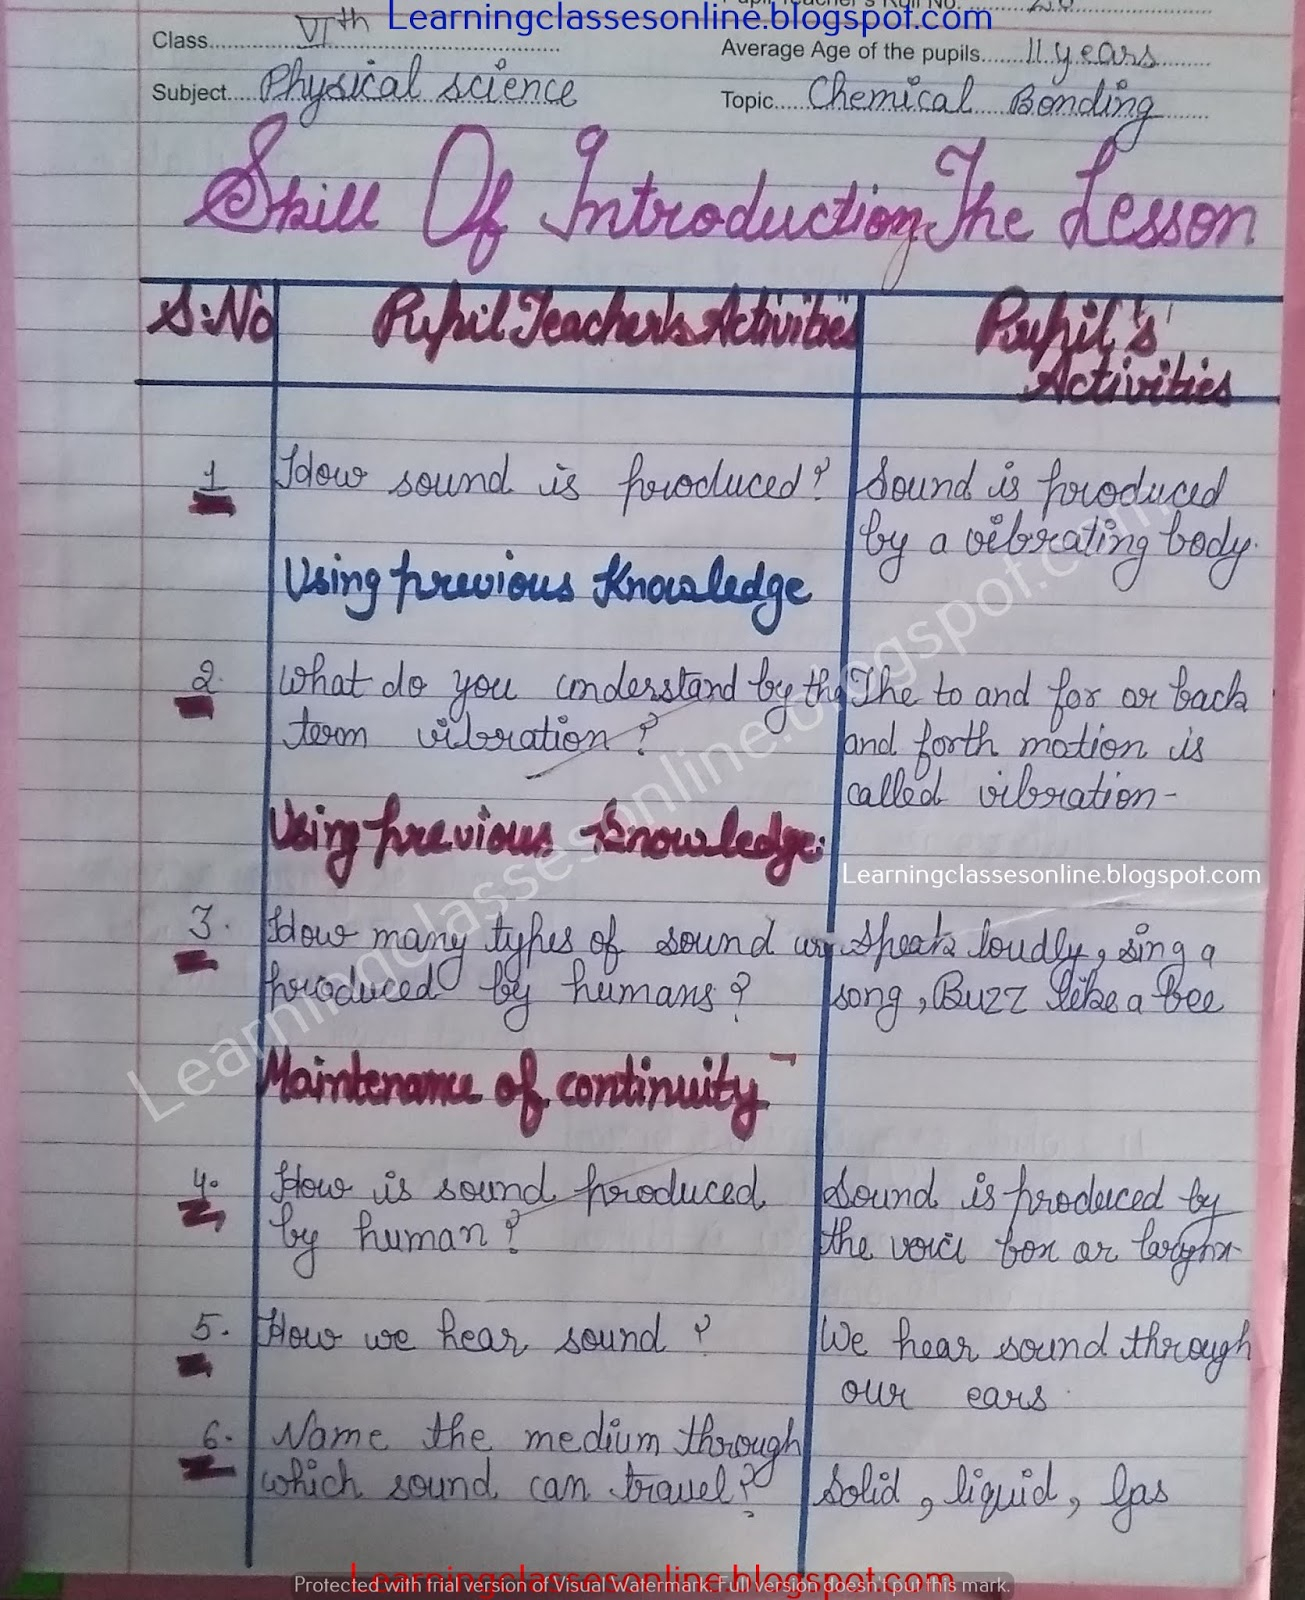 Learningclassesonline.blogspot.com
Class VIth Average Age of the pupils 11 years
Subject Physical science Topic Chemical Bonding
Skill Of Introduction The Lesson
S.No Pupil Teacher's Activities Pupil's
Activities
1 How sound is produced? Sound is produced
by a vibrating body.
Using previous Knowledge
2. What do you understand by the The to and for or back
term vibration? and forth motion is
called vibration-
Using previous Knowledge:
Learningclassesonline.blogspot.com
3. How many types of sound Speak loudly, sing a
produced by humans? song, Buzz like a bee
Maintenance of continuity
4. How is sound produced Sound is produced by
by human? the voice box or larynx
5. How we hear sound? We hear sound through
our ears.
6. Name the medium through
which sound can travel? Solid, liquid, Gas
Learningclassesonline.blogspot.com
Learningclassesonline.blogspot.com
Protected with trial version of Visual Watermark. Full version doesn't put this mark.